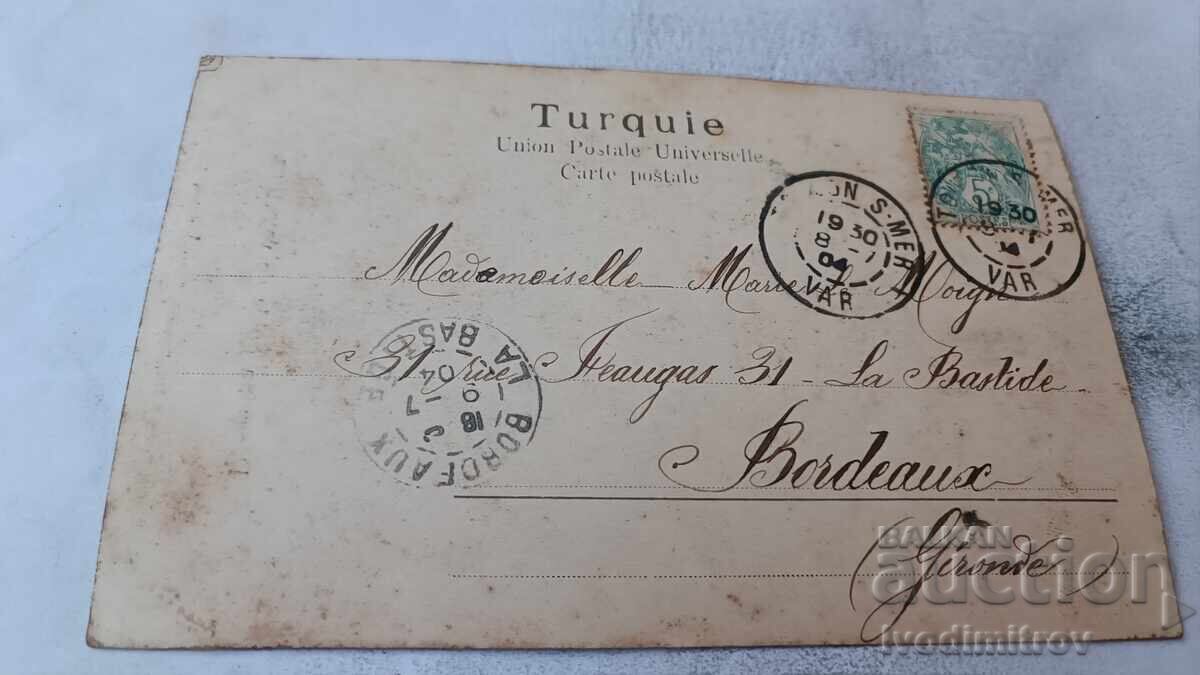 Turquie
Union Postale Universelle
Carte postale
S-MER
19 30
8 - 7
04
VAR
5
MER
19 30
VAR
Mademoiselle Marie Le Moign
31 rue Feaugas 31 - La Bastide
Bordeaux
(Gironde)
BORDEAUX
LA BAS
18
9 - 7
04
BALKAN
auction
ivodimitrov